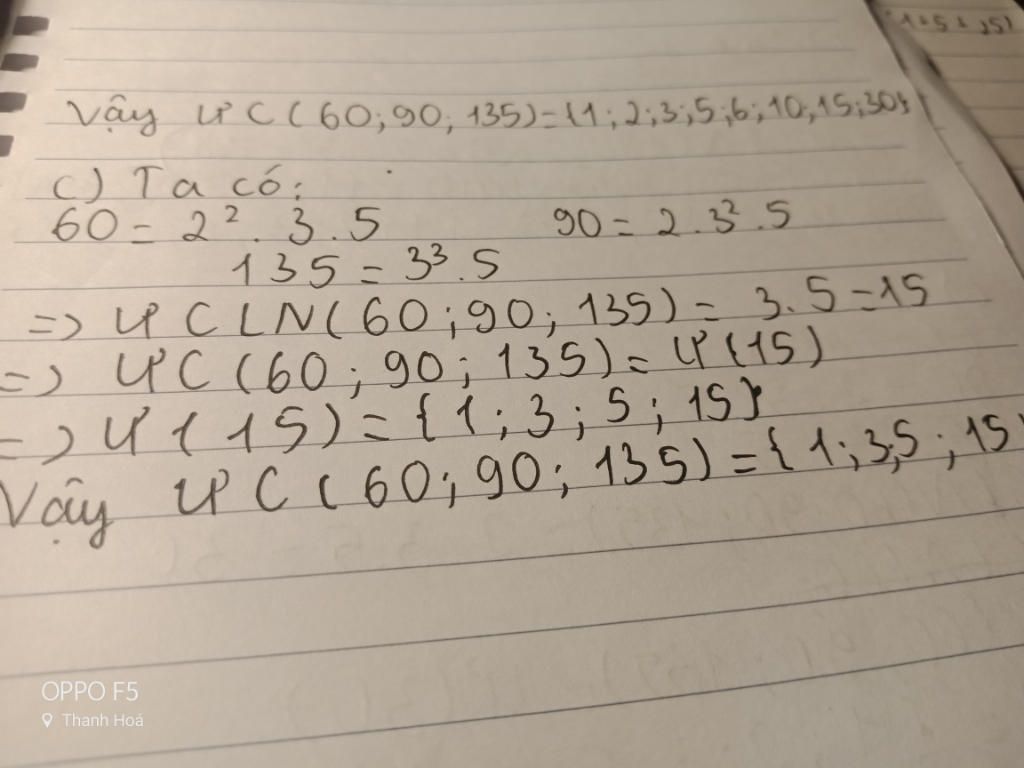 1 ; 5 ; 15}
Vậy ƯC(60;90;135)={1;2;3;5;6;10;15;30}
c) Ta có:
60 = 2². 3 . 5 90 = 2 . 3² . 5
135 = 3³ . 5
=> ƯCLN(60;90;135) = 3. 5 = 15
=> ƯC(60;90;135) = Ư(15)
=> Ư(15) = {1;3;5;15}
Vậy ƯC(60;90;135) = {1;3;5;15}
OPPO F5
Thanh Hoá